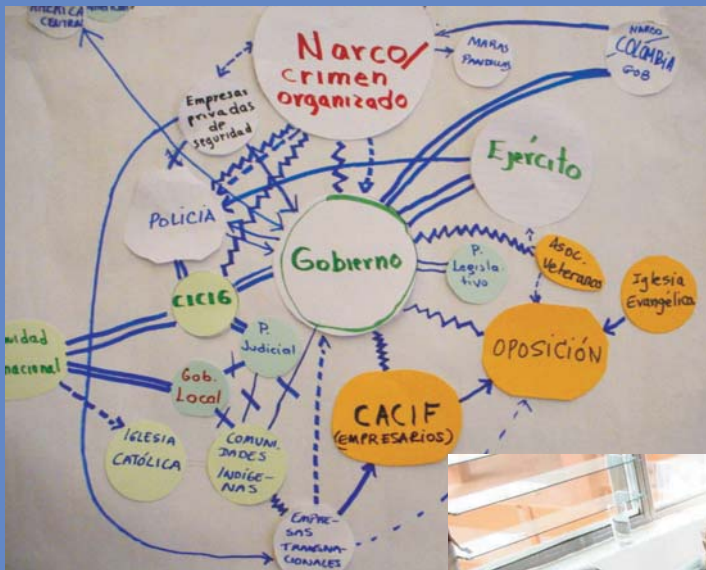 AMÉRICA
CENTRAL
Narco/
crimen
organizado
MARAS
PANDILLAS
NARCO/
COLOMBIA
GOB
Empresas
privadas
de
seguridad
Ejército
POLICIA
Gobierno
P.
Legisla-
tivo
ASOC.
Veteranos
Iglesia
Evangélica
CICIG
P.
Judicial
OPOSICIÓN
nidad
nacional
Gob.
Local
CACIF
(EMPRESARIOS)
IGLESIA
CATÓLICA
COMUNI-
DADES
INDÍGE-
NAS
EMPRE-
SAS
TRANSNA-
CIONALES